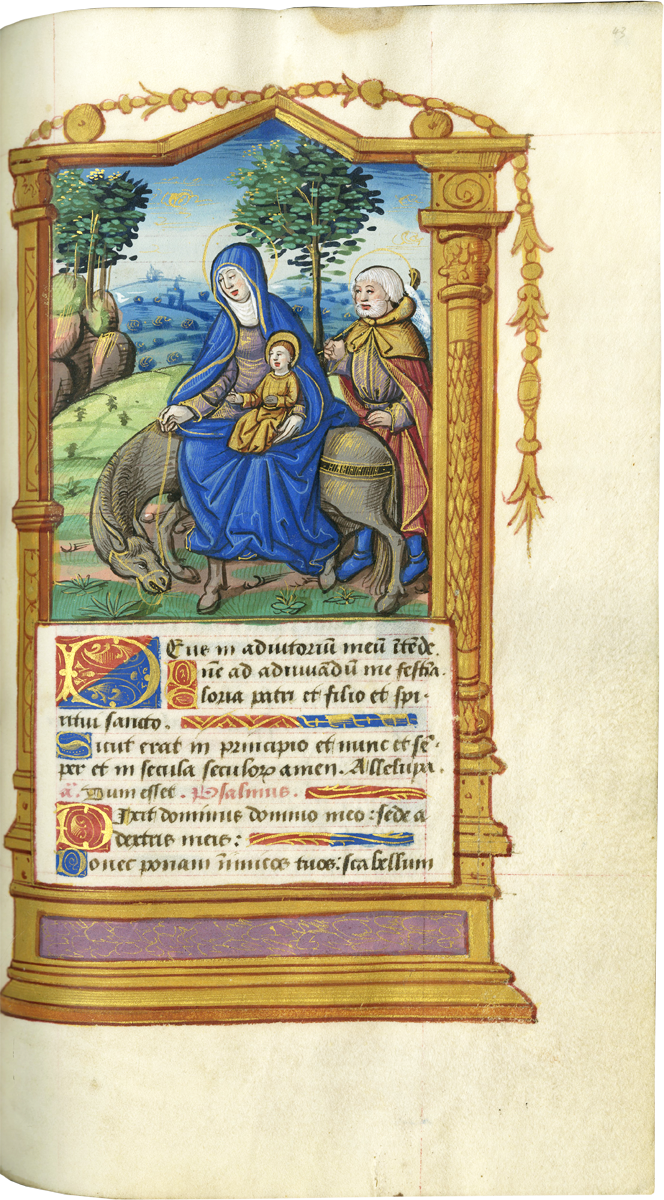 43
Deus in adiutoriū meū ītēde.
Dñe ad adiuuādū me festīa.
Gloria patri et filio et spi-
ritui sancto.
Sicut erat in principio et nunc et sē-
per et in secula seculoꝝ amen. Alleluya.
a. Dum esset. Psalmus.
Dixit dominus domino meo: sede a
dextris meis:
Donec ponam īimicos tuos: scabellum